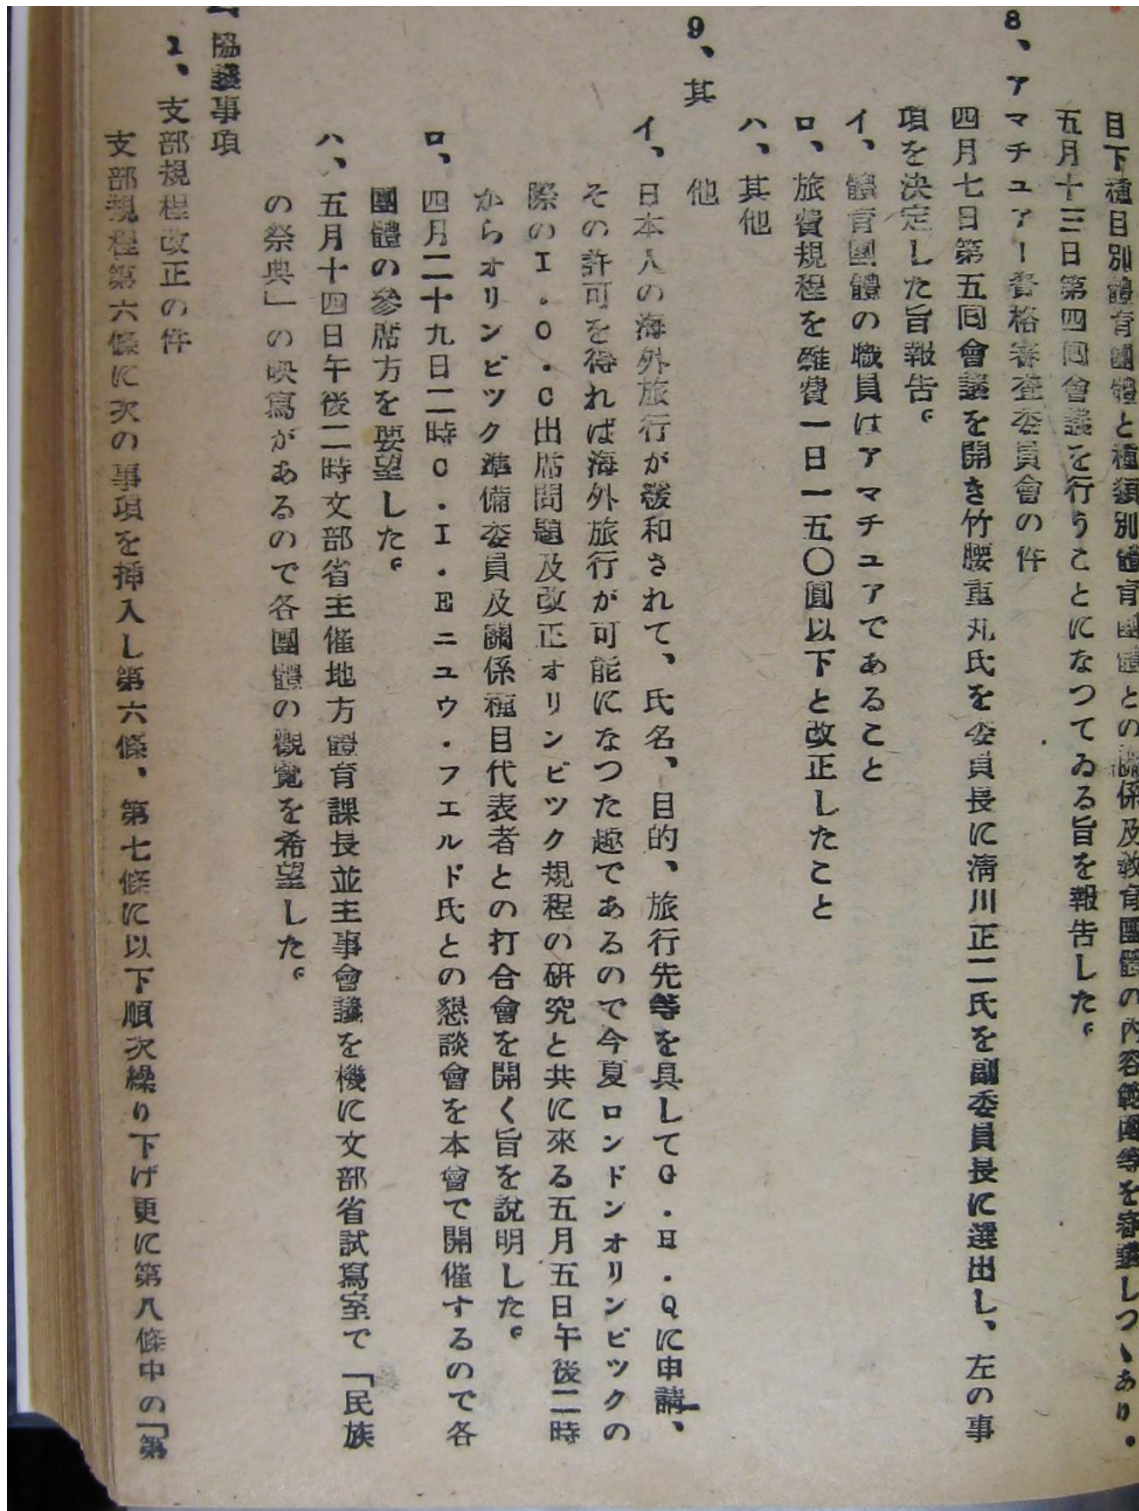 目下種目別體育團體と種類別體育團體との關係及教育團體の內容範圍等を審議しつゝあり・
五月十三日第四囘會議を行うことになつてゐる旨を報告した。
8、アマチュアー資格審査委員會の件
四月七日第五囘會議を開き竹腰重丸氏を委員長に淸川正二氏を副委員長に選出し、左の事
項を決定した旨報告。
イ、體育團體の職員はアマチュアであること
ロ、旅費規程を雜費一日一五〇圓以下と改正したこと
ハ、其他
9、其　他
イ、日本人の海外旅行が緩和されて、氏名、目的、旅行先等を具してG・H・Qに申請、
その許可を得れば海外旅行が可能になつた趣であるので今夏ロンドンオリンピツクの
際のI・O・C出席問題及改正オリンピツク規程の硏究と共に來る五月五日午後二時
からオリンピツク準備委員及關係種目代表者との打合會を開く旨を說明した。
ロ、四月二十九日二時C・I・Eニユウ・フエルド氏との懇談會を本會で開催するので各
團體の參席方を要望した。
ハ、五月十四日午後二時文部省主催地方體育課長並主事會議を機に文部省試寫室で「民族
の祭典」の映寫があるので各團體の觀覽を希望した。
協議事項
1、支部規程改正の件
支部規程第六條に次の事項を挿入し第六條、第七條に以下順次繰り下げ更に第八條中の「第